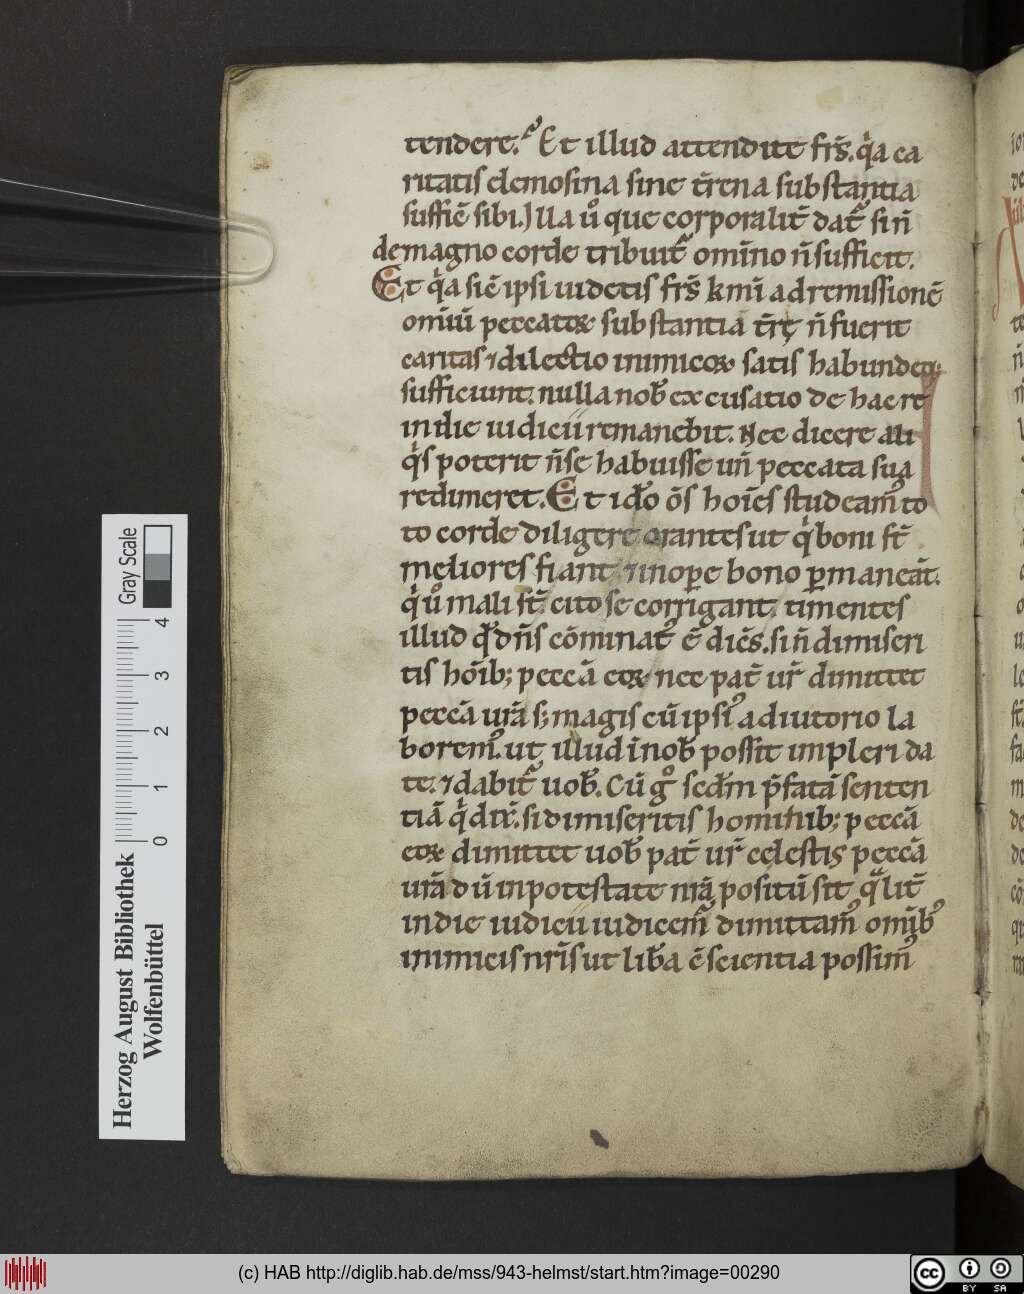 tendere. Et illud attendite frs̄. qͥa ca
ritatis elemosina sine t̄rena substantia
suffic̄ sibi. Illa uͦ que corporalit̄ dat᷑ si n̄
de magno corde tribuit᷑ om̄ino n̄ sufficit.
Et qͥa sic̄ ipsi uidetis frs̄ km̄i ad remissionē
om̄iū peccatoꝝ substantia t̄rę n̄ fuerit
caritas ⁊ dilectio inimicoꝝ satis habundeq;
sufficiunt. nulla nob̄ excusatio de hac re
in die iudicii remanebit. Nec dicere ali
qͥs poterit n̄ se habuisse un̄ peccata sua
redimeret. Et idō ōs hoīes studeam᷒ to
to corde diligere orantes ut qͥ boni st̄
meliores fiant ⁊ in oꝑe bono ꝑmaneāt.
qͥ uͦ mali st̄ cito se corrigant. timentes
illud qd̄ dn̄s cōminat᷒ ē dicēs. si n̄ dimiseri
tis hōib; peccā eoꝝ nec pat̄ ur̄ dimittet
peccā urā s; magis cū ipsi᷒ adiutorio la
borem᷒. ut illud in nob̄ possit impleri da
te. ⁊ dabit᷑ uob̄. Cū gͦ sed̄m p̄fatā senten
tiā qͥ dix̄. si dimiseritis hominib; peccā
eoꝝ dimittet uob̄ pat̄ ur̄ celestis peccā
urā dū in potestate nrā positū sit qͣlit̄
in die iudicii iudicem᷑ dimittam᷒ om̄ib᷒
inimicis nr̄is ut lib̄a c̄scientia possim᷒
Gray Scale
4
3
2
1
0
Herzog August Bibliothek
Wolfenbüttel
(c) HAB http://diglib.hab.de/mss/943-helmst/start.htm?image=00290
cc
BY SA